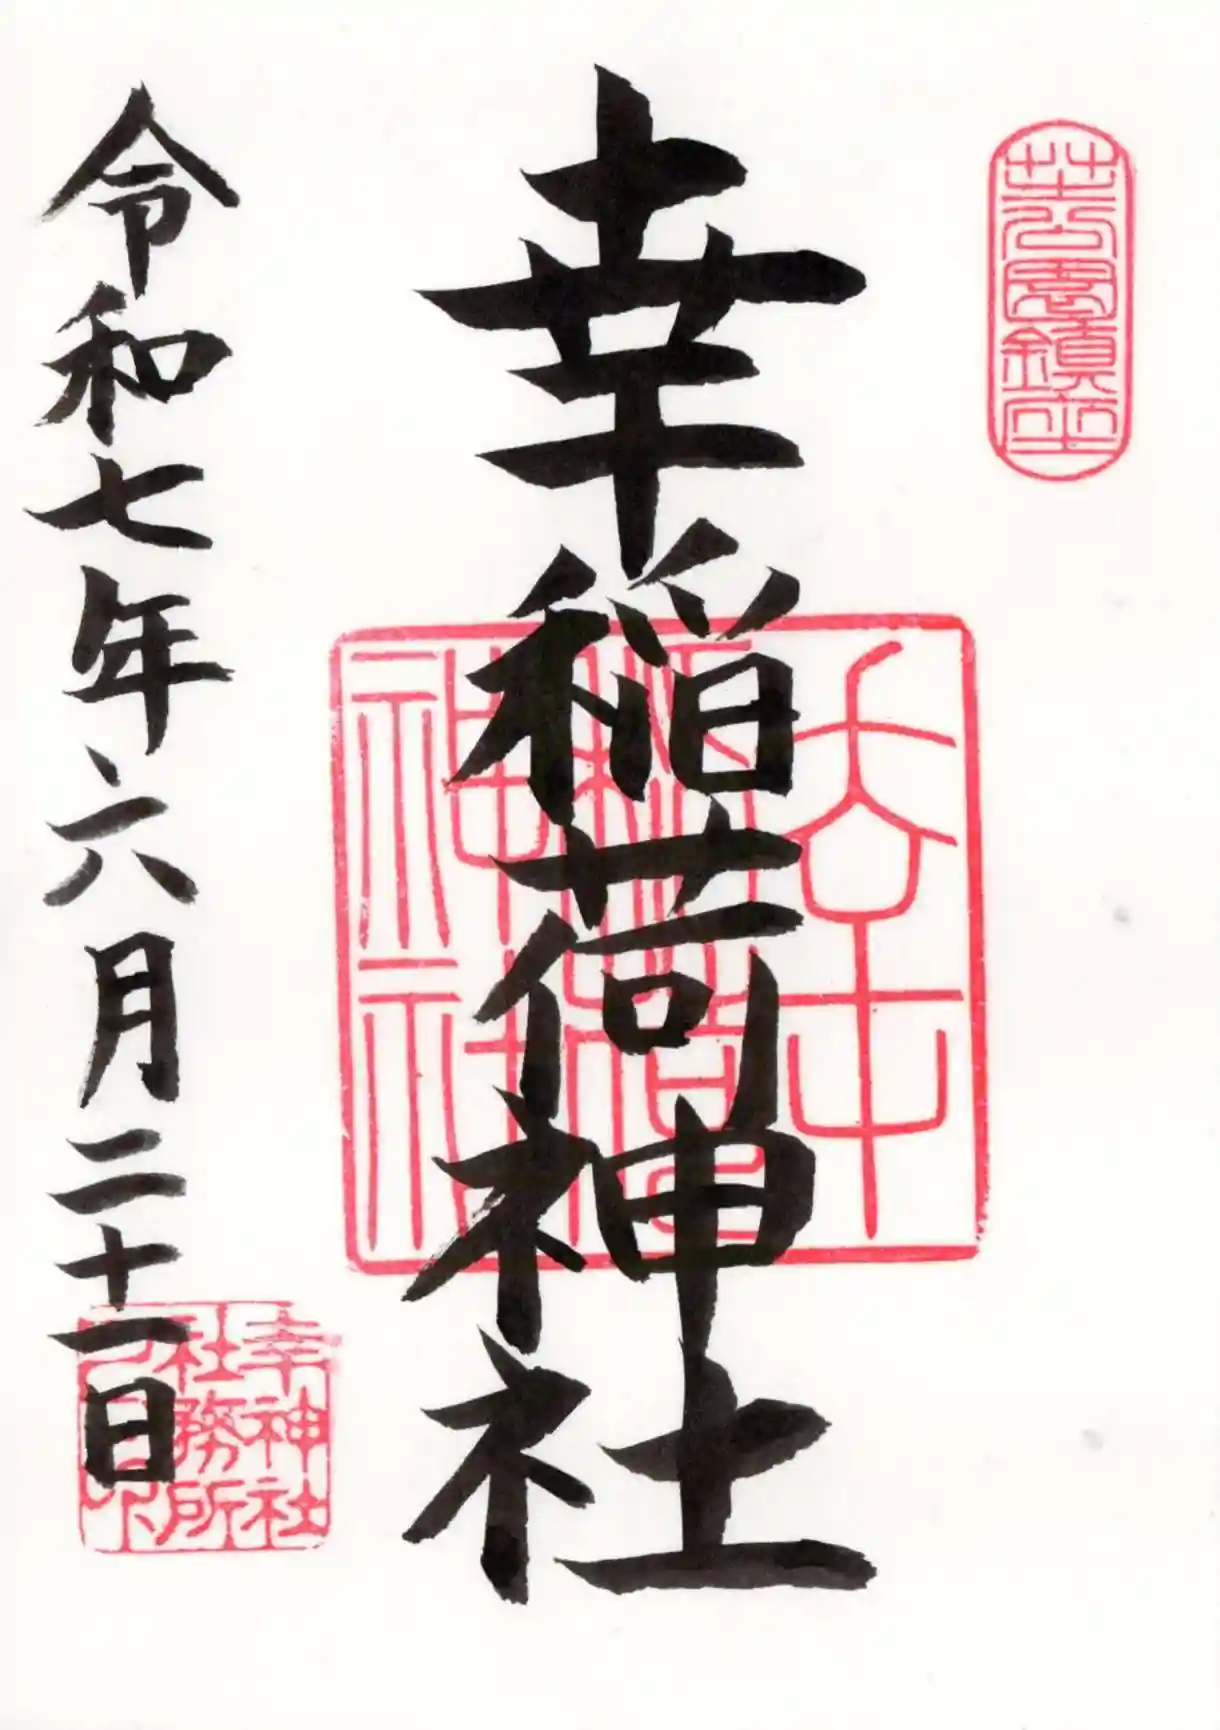 芝公園鎮座
幸稲荷神社
幸
稲荷
神社
令和七年六月二十一日
幸神社
社務所